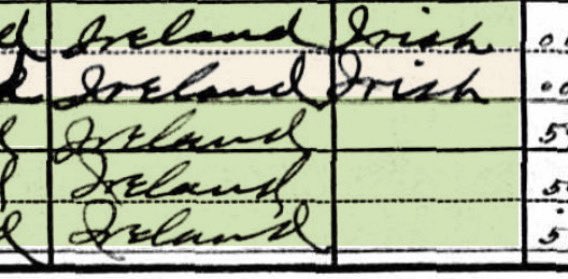 Ireland Irish
Ireland Irish
Ireland
Ireland
Ireland